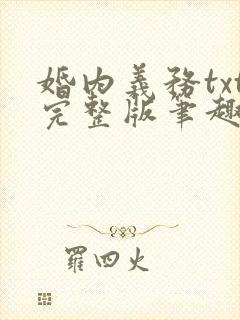 婚内義務txt
完整版筆趣
羅四火